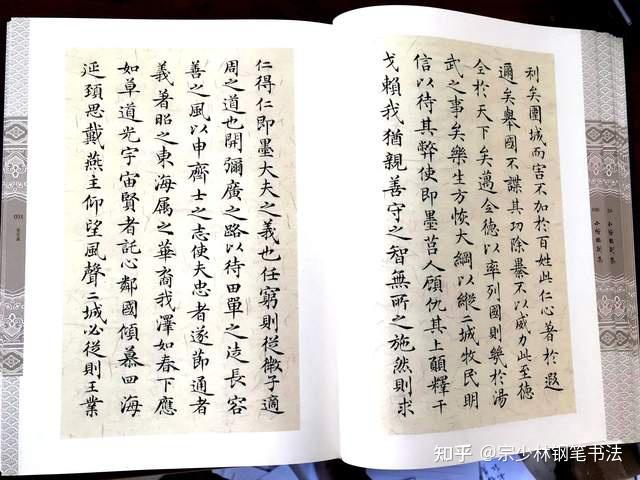 利矣圍城而害不加於百姓此仁心著於遐
邇矣舉國不謀其功除暴不以威力此至德
全於天下矣邁全德以率列國則幾於湯
武之事矣樂生方恢大綱以縱二城牧民明
信以待其弊使即墨莒人顧仇其上願釋干
戈賴我猶親善守之智無所之施然則求
仁得仁即墨大夫之義也任窮則從微子適
周之道也開彌廣之路以待田單之徒長容
善之風以申齊士之志使夫忠者遂節通者
義著昭之東海属之華裔我澤如春下應
如草道光宇宙賢者託心鄰國傾慕四海
延頸思戴燕主仰望風聲二城必從則王業
知乎 @宗少林钢笔书法